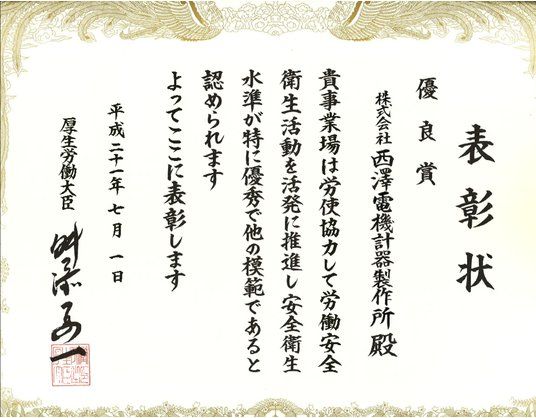 表彰状
優良賞
株式会社 西澤電機計器製作所殿
貴事業場は労使協力して労働安全
衛生活動を活発に推進し安全衛生
水準が特に優秀で他の模範であると
認められます
よってここに表彰します
平成二十一年七月一日
厚生労働大臣
舛添要一